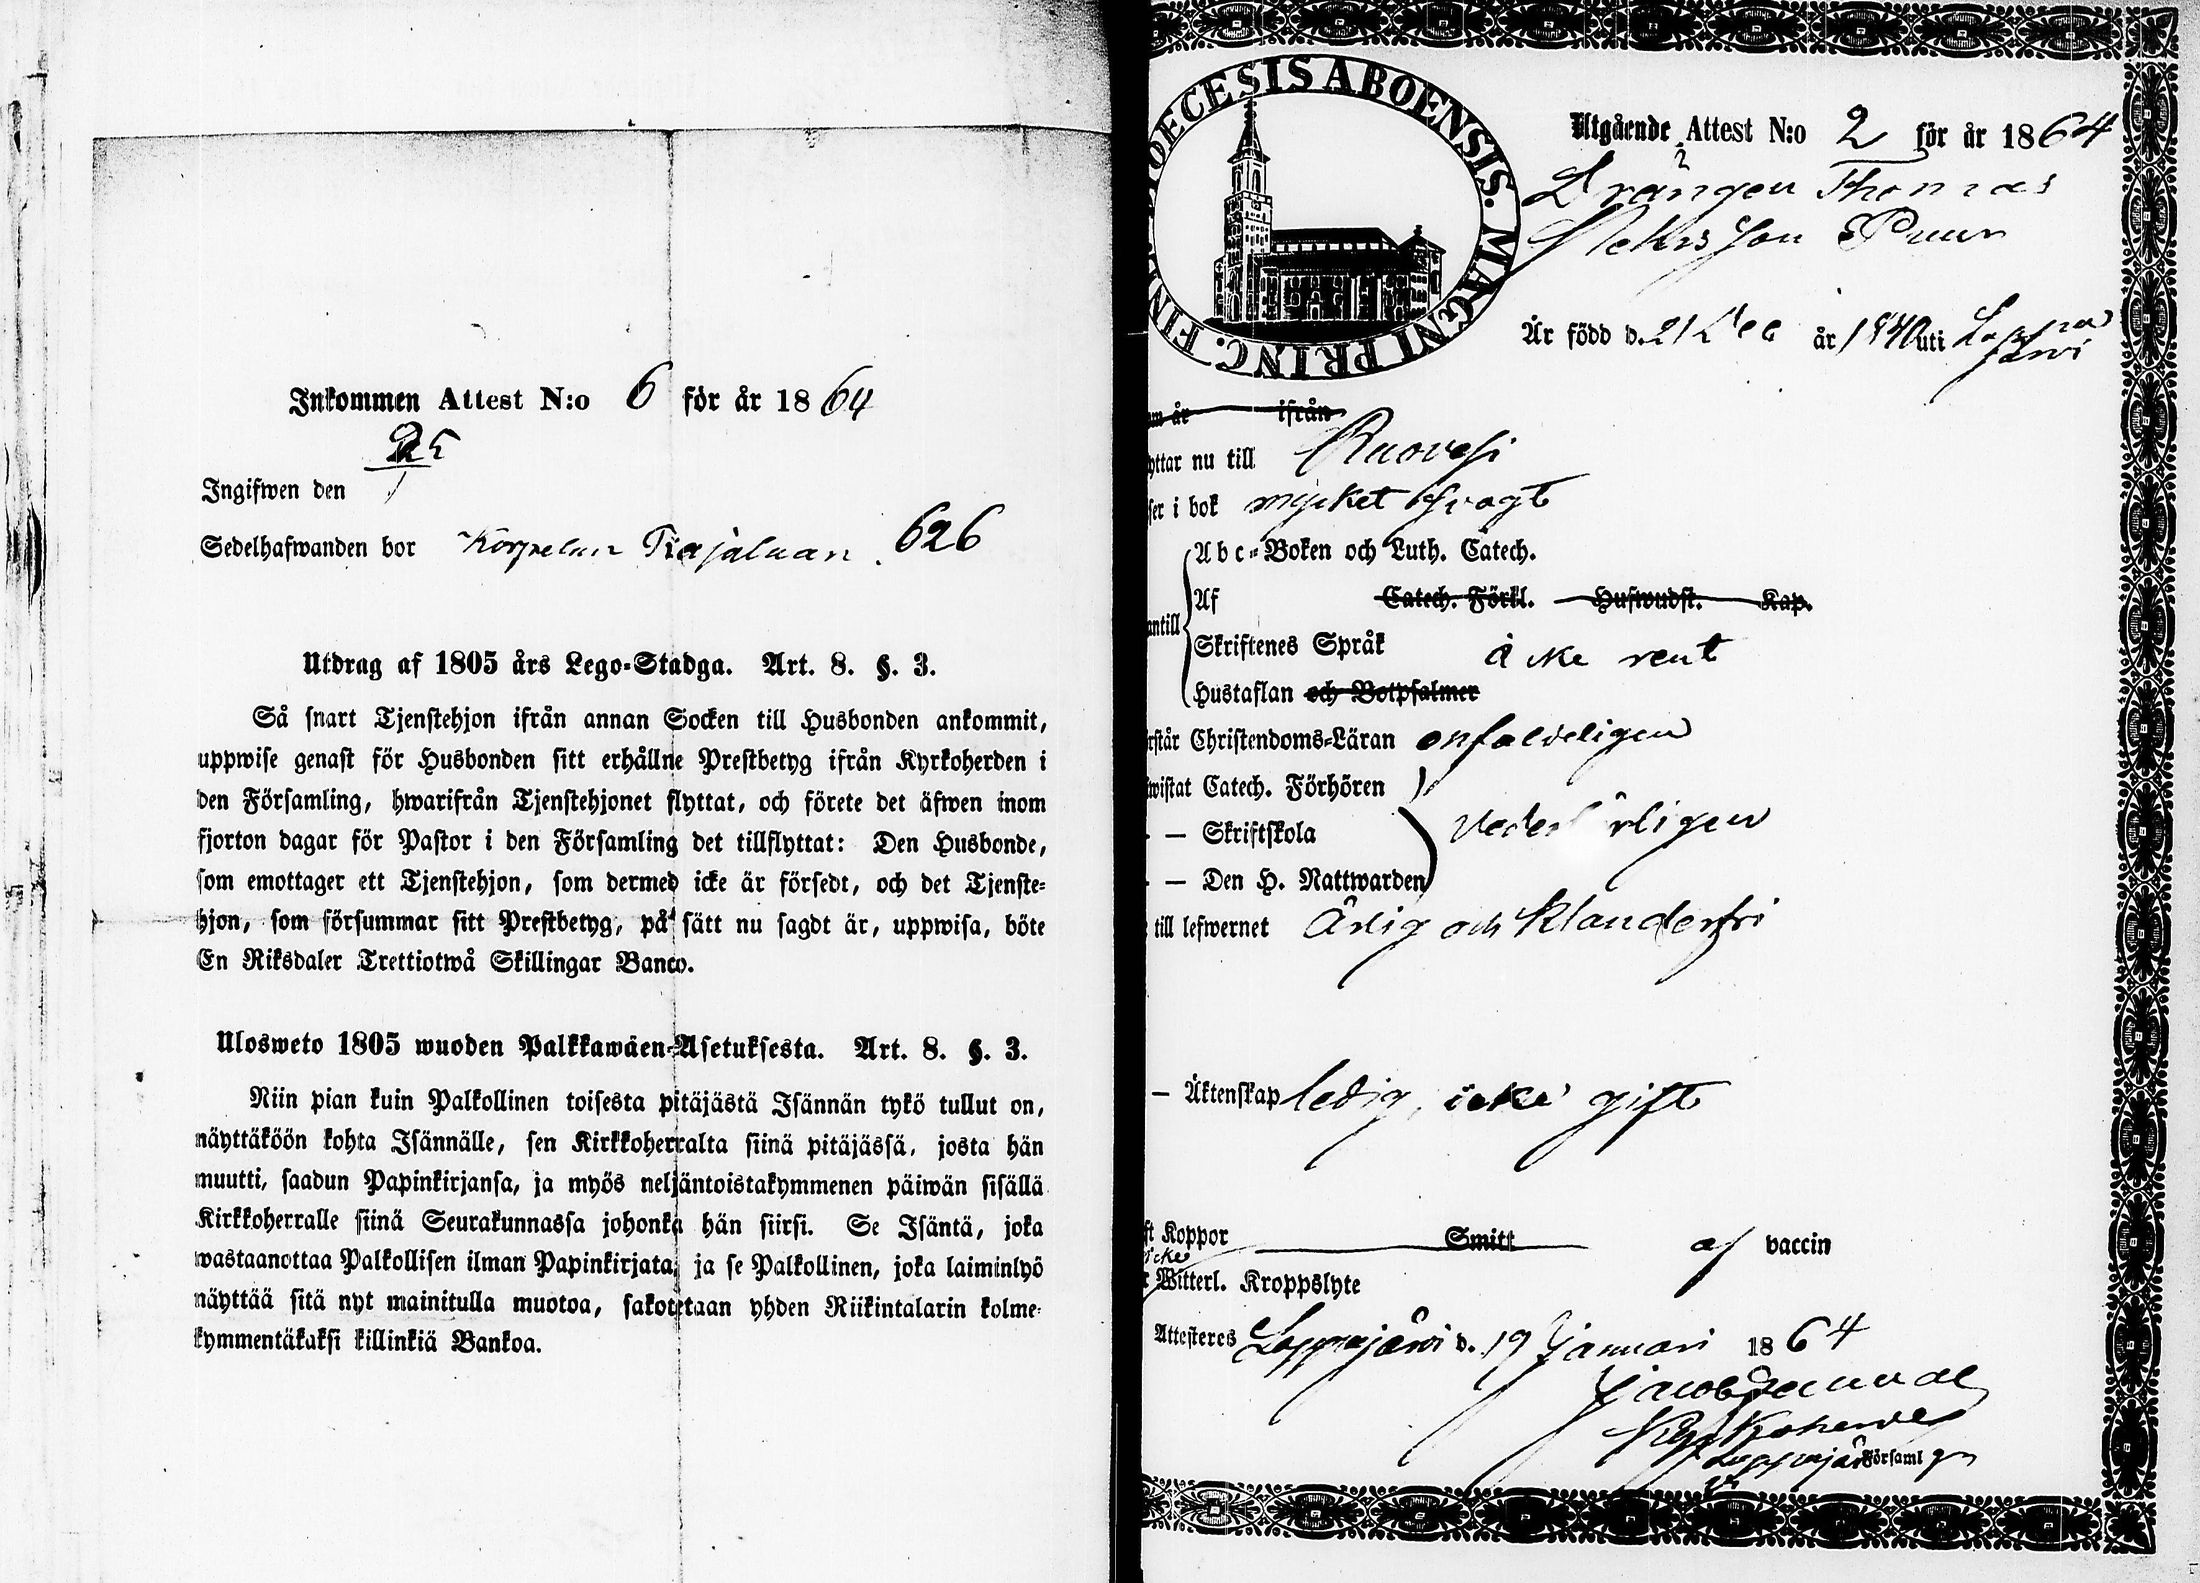 Inkommen Attest N:o 6 för år 1864
25
1
Ingifwen den
Sedelhafwanden bor Korpelan Pajaluan. 626
Utdrag af 1805 års Lego-Stadga. Art. 8. §. 3.
Så snart Tjenstehjon ifrån annan Socken till Husbonden ankommit,
uppwise genast för Husbonden sitt erhållne Prestbetyg ifrån Kyrkoherden i
den Församling, hwarifrån Tjenstehjonet flyttat, och förete det äfwen inom
fjorton dagar för Pastor i den Församling det tillflyttat: Den Husbonde,
som emottager ett Tjenstehjon, som dermed icke är försedt, och det Tjenste-
hjon, som försummar sitt Prestbetyg, på sätt nu sagdt är, uppwisa, böte
En Riksdaler Trettiotwå Skillingar Banco.
Ulosweto 1805 wuoden Palkkawäen-Asetuksesta. Art. 8. §. 3.
Niin pian kuin Palkollinen toisesta pitäjästä Isännän tykö tullut on,
näyttäköön kohta Isännälle, sen Kirkkoherralta siinä pitäjässä, josta hän
muutti, saadun Papinkirjansa, ja myös neljäntoistakymmenen päiwän sisällä
Kirkkoherralle siinä Seurakunnassa johonka hän siirsi. Se Isäntä, joka
wastaanottaa Palkollisen ilman Papinkirjata, ja se Palkollinen, joka laiminlyö
näyttää sitä nyt mainitulla muotoa, sakotetaan yhden Riikintalarin kolme-
kymmentäkaksi killinkiä Bankoa.
DIOECESIS ABOENSIS. MAGNI PRINC. FINL.
Utgående Attest N:o 2 för år 1864
2
Drängen Thomas
Mattsson Puur
Är född d. 21 Dec år 1840 uti Lappajärwi
om år ifrån
yttar nu till Ruovesi
ser i bok mycket svagt
Abc-Boken och Luth. Catech.
Af Catech. Förkl. Hufwudst. Kap.
antill
Skriftenes Språk icke rent
Hustaflan och Botpsalmer
rstår Christendoms-Läran enfaldeligen
wistat Catech. Förhören
— Skriftskola vederbörligen
— Den H. Nattwarden
till lefwernet Ärlig och klanderfri
— Äktenskap ledig, icke gift
ft Koppor Smitt af vaccin
icke
r Witterl. Kroppslyte
Attesteres Lappajärwi d. 19 Januari 1864
Jacob
Kyrkoherde
Lappajärwi Församl gn